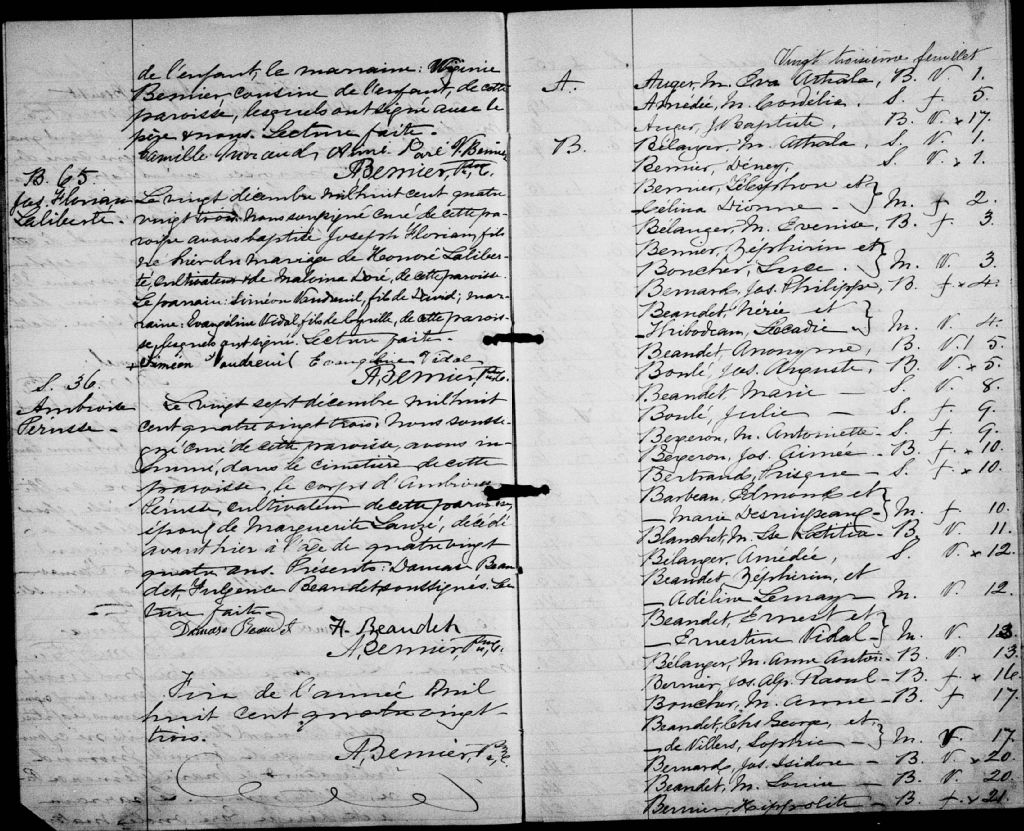 de l'enfant, le marraine: Virginie
Bernier cousine de l'enfant, de cette
paroisse, lesquels ont signé avec le
père & nous. Lecture faite.
Camille Aimé Paré V. Bernier
A. Bernier, Ptre C.
B. 65
Jos. Florian
Laliberté.
Le vingt décembre mil huit cent quatre
vingt trois Nous soussigné curé de cette pa-
roisse avons baptisé Joseph Florian, fils
né hier du mariage de Honoré Laliber-
té, cultivateur & de Malvina Doré, de cette paroisse.
Le parrain: Siméon Vaudreuil, fils de David; mar-
raine: Evangéline Vidal, fils de Cyrille, de cette parois-
se, lesquels ont signé. Lecture faite.
Siméon Vaudreuil Evangéline Vidal
A. Bernier, Ptre C.
S. 36.
Ambroise
Perusse -
Le vingt sept décembre mil huit
cent quatre vingt trois. Nous soussi-
gné curé de cette paroisse, avons in-
humé, dans le cimetière de cette
paroisse, le corps d'Ambroise
Pérusse, cultivateur de cette paroisse,
époux de Marguerite Lauzé, décédé
avant hier à l'âge de quatre vingt
quatre ans. Présents: Damase Beau-
det, Fulgence Beaudet soussignés. Lec-
ture faite.
Damase Beaudet F. Beaudet
A. Bernier, Ptre C.
Fin de l'année mil
huit cent quatre vingt-
trois.
A. Bernier, Ptre C.
Vingt troisième feuillet
A. Auger, M. Eva Athala, B. V. 1.
Amédée, M. Cordélia. S. f. 5.
Auger, J. Baptiste, B. V. x 17.
B. Bélanger, M. Athala. S. V. 1.
Bernier, S. V. x 1.
Bernier, Télesphore et
Célina Dionne - } M. f. 2.
Bélanger, M. Evenise, B. f. 3.
Bernier, Zéphirin et
Boucher, Luce. } M. V. 3.
Bernard, Jos. Philippe, B. f. x 4.
Beaudet, Nérée, et
Thibodeau, Léocadie - } M. V. 4.
Beaudet, Anonyme, B. V. 5.
Boulé, Jos. Auguste, B. V. x 5.
Beaudet, Marie - S. V. 8.
Boulé, Julie - S. f. 9.
Bergeron, M. Antoinette - S. f. 9.
Bergeron, Jos. Aimée - B. f. x 10.
Bertrand, Prisque - S. f. x 10.
Barbeau, Edmond et
- Marie - } M. f. 10.
Blanchet, M. Lætitia - B. V. 11.
Bélanger, Amédée, S. V. x 12.
Beaudet Zéphirin, et
- Adéline Lemay - M. V. 12.
Beaudet, Ernest et
- Ernestine Vidal - } M. V. 13.
Bélanger, M. Anne Antoi - B. V. 13.
Bernier, Jos. Alp. Raoul - B. f. x 16.
Boucher, M. Anne - B. f. 17.
Beaudet, Chs George, et
- de Villers, Sophie - } M. V. 17.
Bernard, Jos. Isidore - B. V. x 20.
Beaudet, M. Louise - B. V. 20.
Bernier, Hippolite - B. f. x 21.